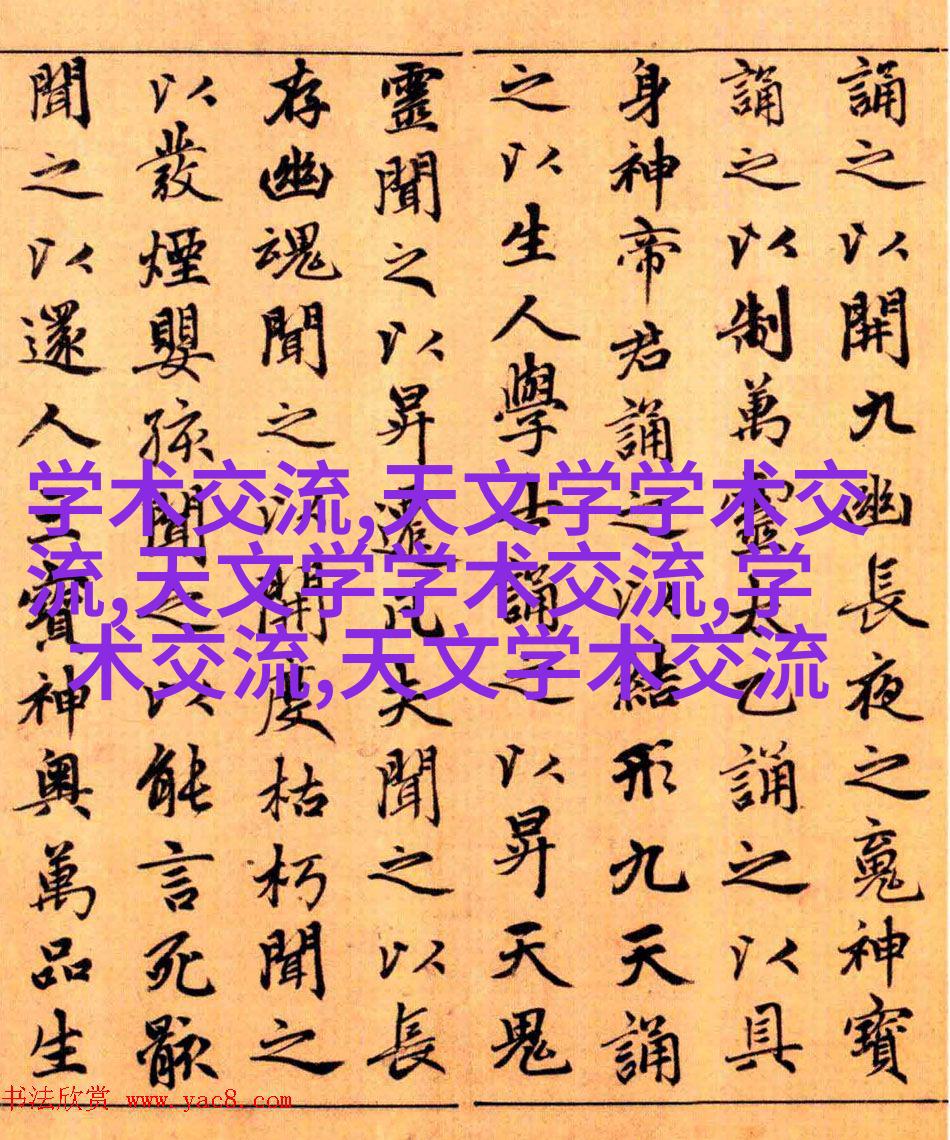 誦之以開九幽長夜之䰟神寶
誦之以制萬靈太乙誦之以具
身神帝君誦之以結形九天誦
之以生人學士誦之以昇天鬼
靈聞之以昇遷凡夫聞之以長
存幽魂聞之以開度枯朽聞之
以發煙嬰孩聞之以能言死骸
聞之以還人三寶神奧萬品生
学术交流,天文学学术交
流,天文学学术交流,学
术交流,天文学术交流
书法欣赏 www.yac8.com